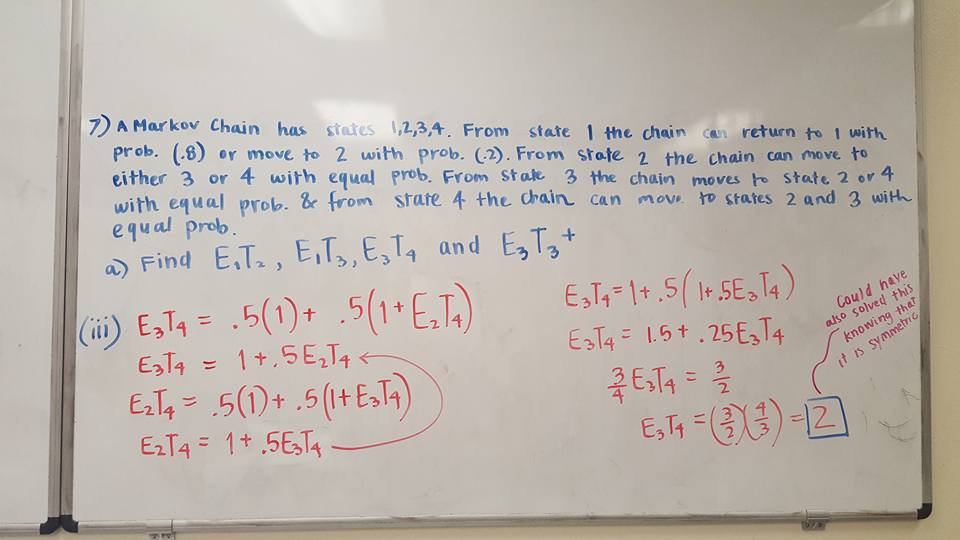 7) A Markov Chain has states 1,2,3,4. From state 1 the chain can return to 1 with
prob. (.8) or move to 2 with prob. (.2). From state 2 the chain can move to
either 3 or 4 with equal prob. From state 3 the chain moves to state 2 or 4
with equal prob. & from state 4 the chain can move to states 2 and 3 with
equal prob.
a) Find E₁T₂, E₁T₃, E₃T₄ and E₃T₃⁺
(iii) E₃T₄ = .5(1) + .5(1+E₂T₄)
E₃T₄ = 1 + .5E₂T₄
E₂T₄ = .5(1) + .5(1+E₃T₄)
E₂T₄ = 1 + .5E₃T₄
E₃T₄ = 1 + .5(1+.5E₃T₄)
E₃T₄ = 1.5 + .25E₃T₄
3/4 E₃T₄ = 3/2
E₃T₄ = (3/2)(4/3) = 2
Could have
also solved this
knowing that
it is symmetric